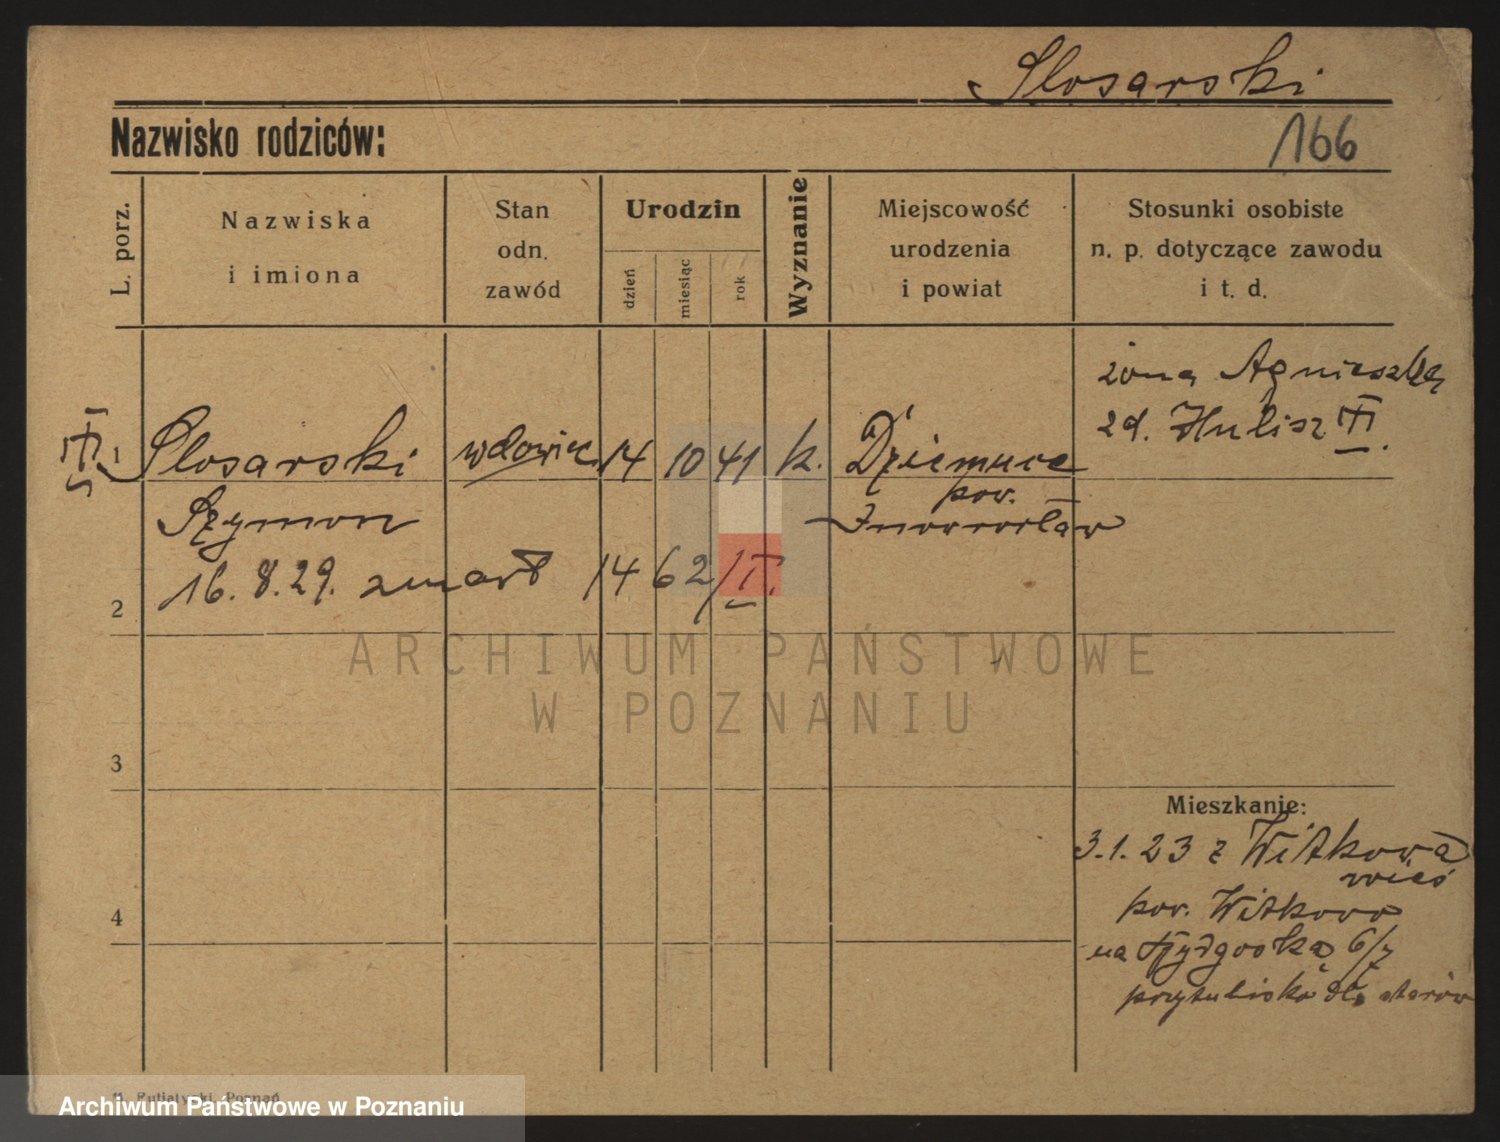 Slosarski
Nazwisko rodziców:
166
L. porz.
Nazwiska
i imiona
Stan
odn.
zawód
Urodzin
dzień
miesiąc
rok
Wyznanie
Miejscowość
urodzenia
i powiat
Stosunki osobiste
n. p. dotyczące zawodu
i t. d.
żona Agnieszka
zd. Hulisz †
† 1 Slosarski wdowiec 14 10 41 k.
pow.
Szymon Inowrocław
16.8.29. zmarł 1462/II.
2
ARCHIWUM PAŃSTWOWE
W POZNANIU
3
Mieszkanie:
3.1.23 z Witkowa
wieś
pow. Witkowo
4
na 6/7
przytulisko dla starców
Poznań
Archiwum Państwowe w Poznaniu